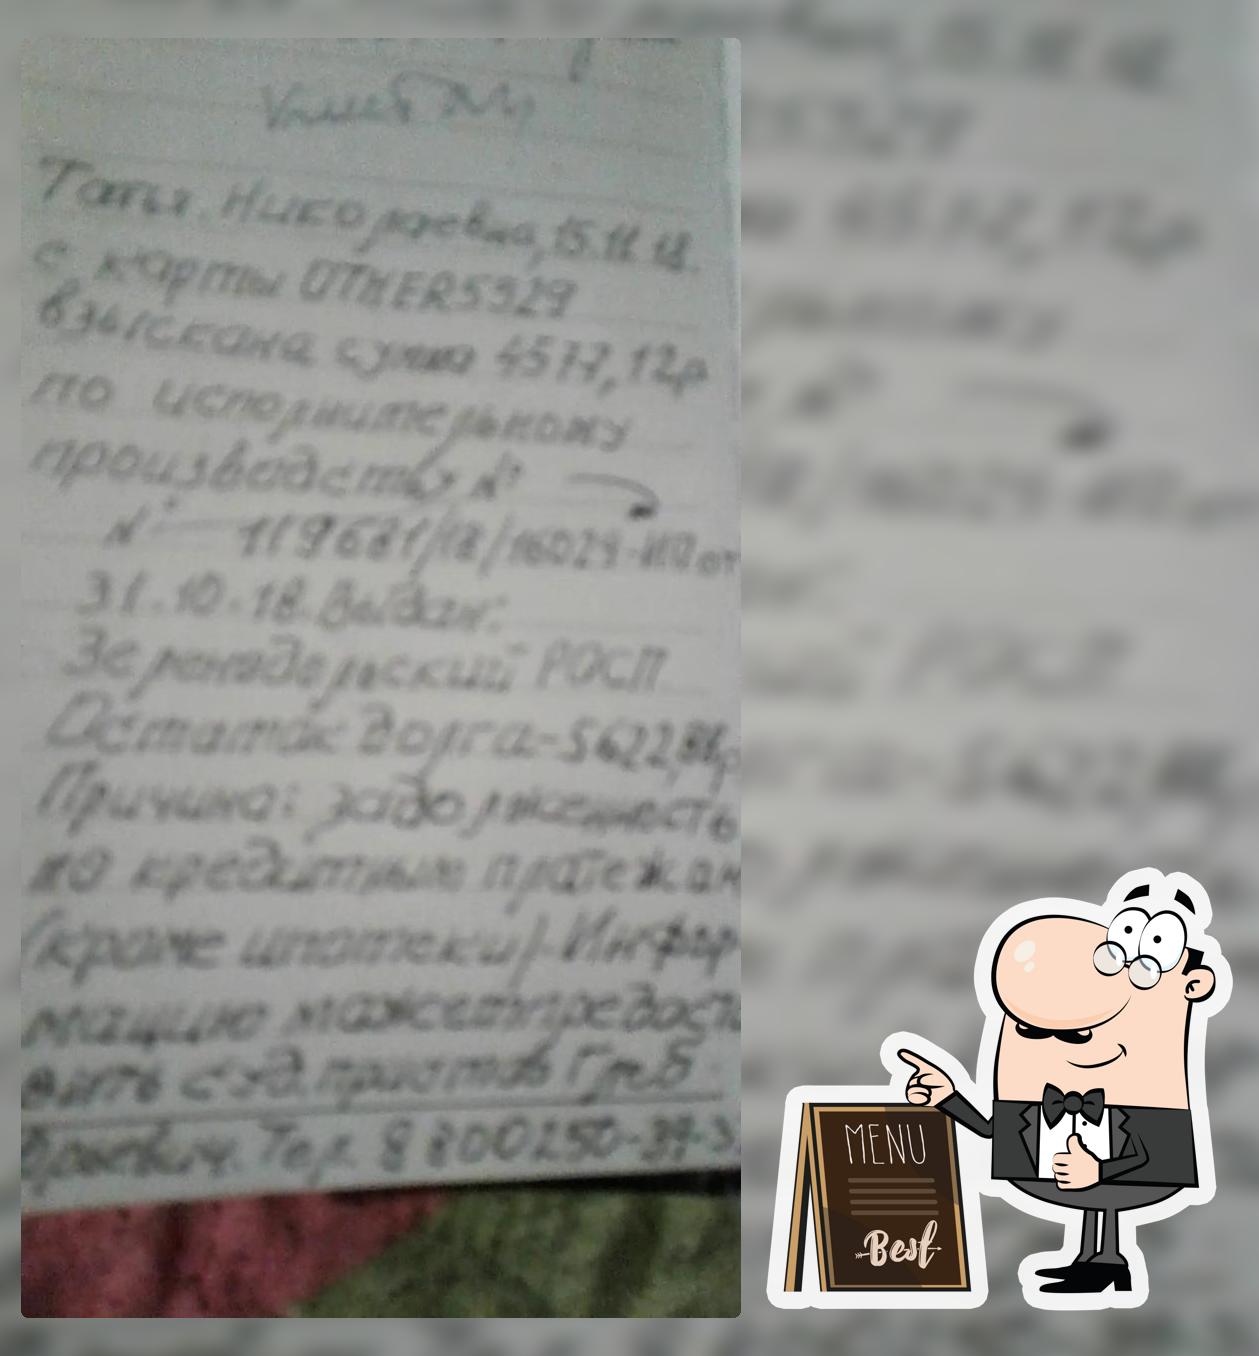 с карты OTHER5329
взыскана сумма 4577,12р
по исполнительному
производству №
№ 119681/18/16024-ИП от
31.10.18. Выдан:
Зеленодольский РОСП
Остаток долга-5622,
Причина: задолженность
по кредитным платежам
(кроме ипотеки). Инфор
мацию может предост
вить суд. пристав
Тел. 8800250-39-3
MENU
Best